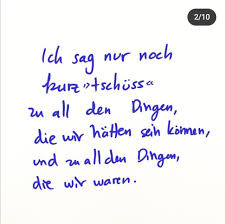 2/10
Ich sag nur noch
kurz »tschüss«
zu all den Dingen,
die wir hätten sein können,
und zu all den Dingen,
die wir waren.